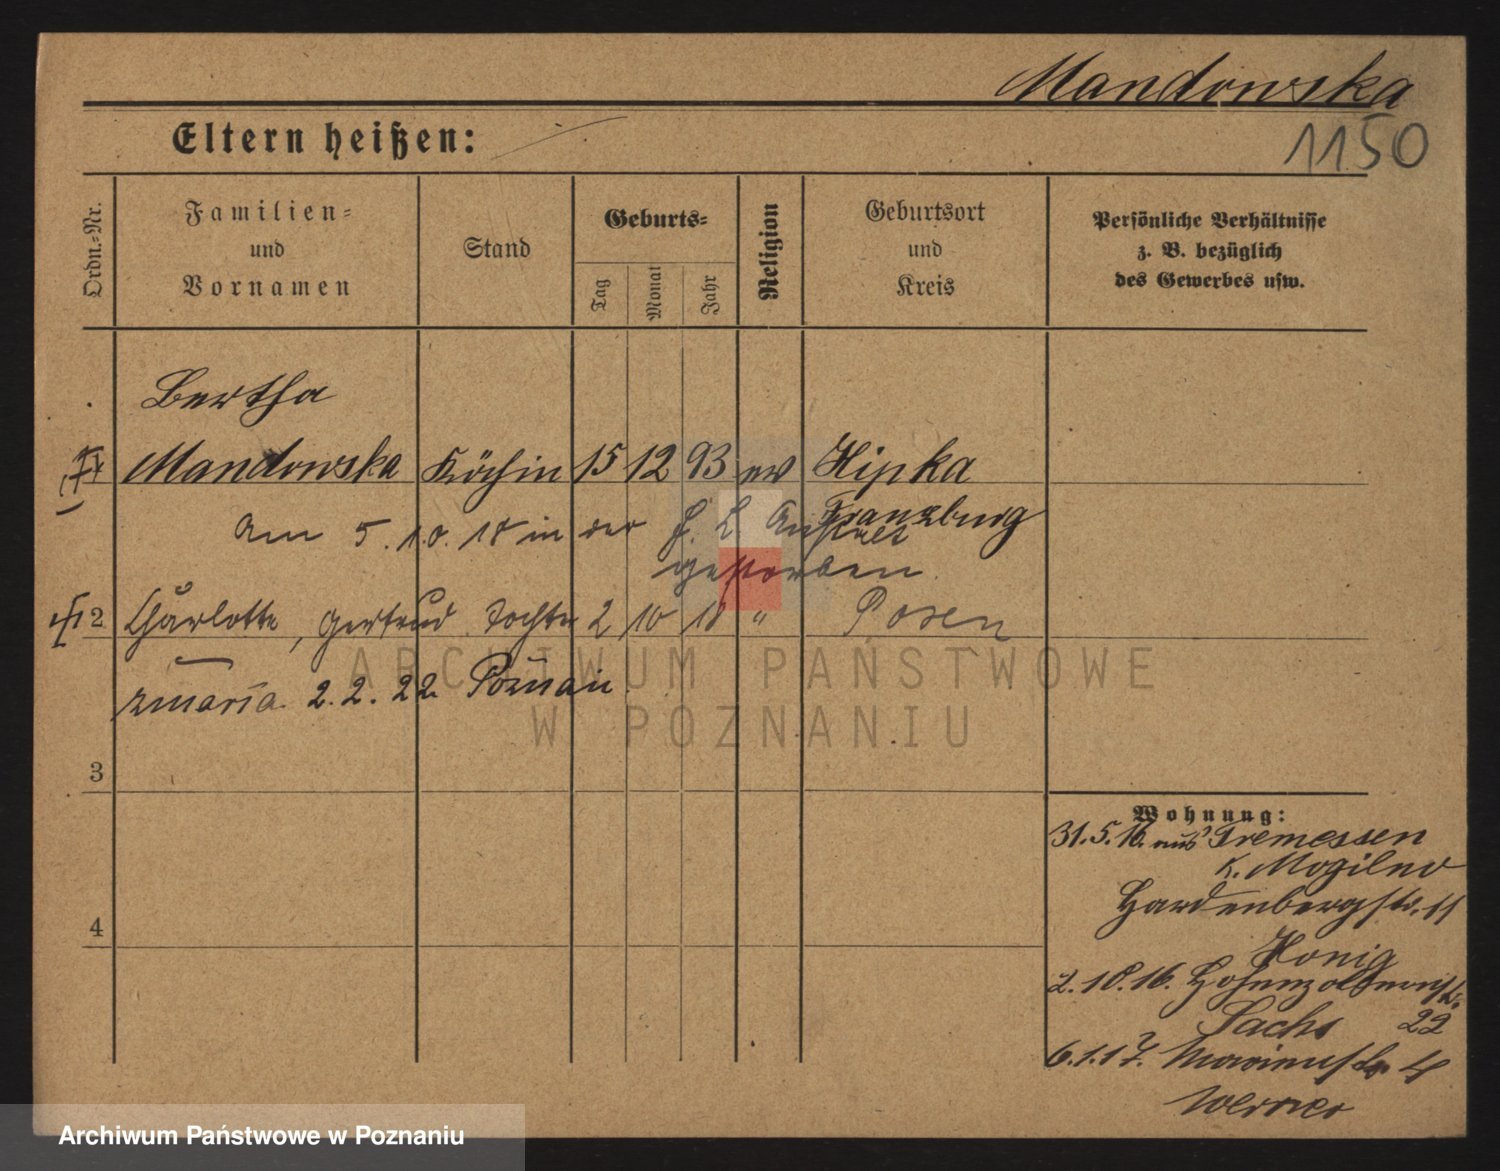 Mandowska
1150
Eltern heißen:
Ordn.-Nr.
Familien-
und
Vornamen
Stand
Geburts-
Tag
Monat
Jahr
Religion
Geburtsort
und
Kreis
Persönliche Verhältnisse
z. B. bezüglich
des Gewerbes usw.
Bertha
Mandowska Köchin 15 12 93 ev Hipka
Franzburg
Am 5.10.18 in der H. L. Anstalt
gestorben.
2 Charlotte, Gertrud Tochter 2 10 18 " Posen
zmarła 2.2.22 Poznań.
ARCHIWUM PAŃSTWOWE
W POZNANIU
3
4
Wohnung:
31.5.16. aus Tremessen
K. Mogilno
Hardenbergstr. 11
Honig
2.10.16. Hohenzollernstr.
Sachs 22
6.1.17. Marienstr 4
Werner
Archiwum Państwowe w Poznaniu